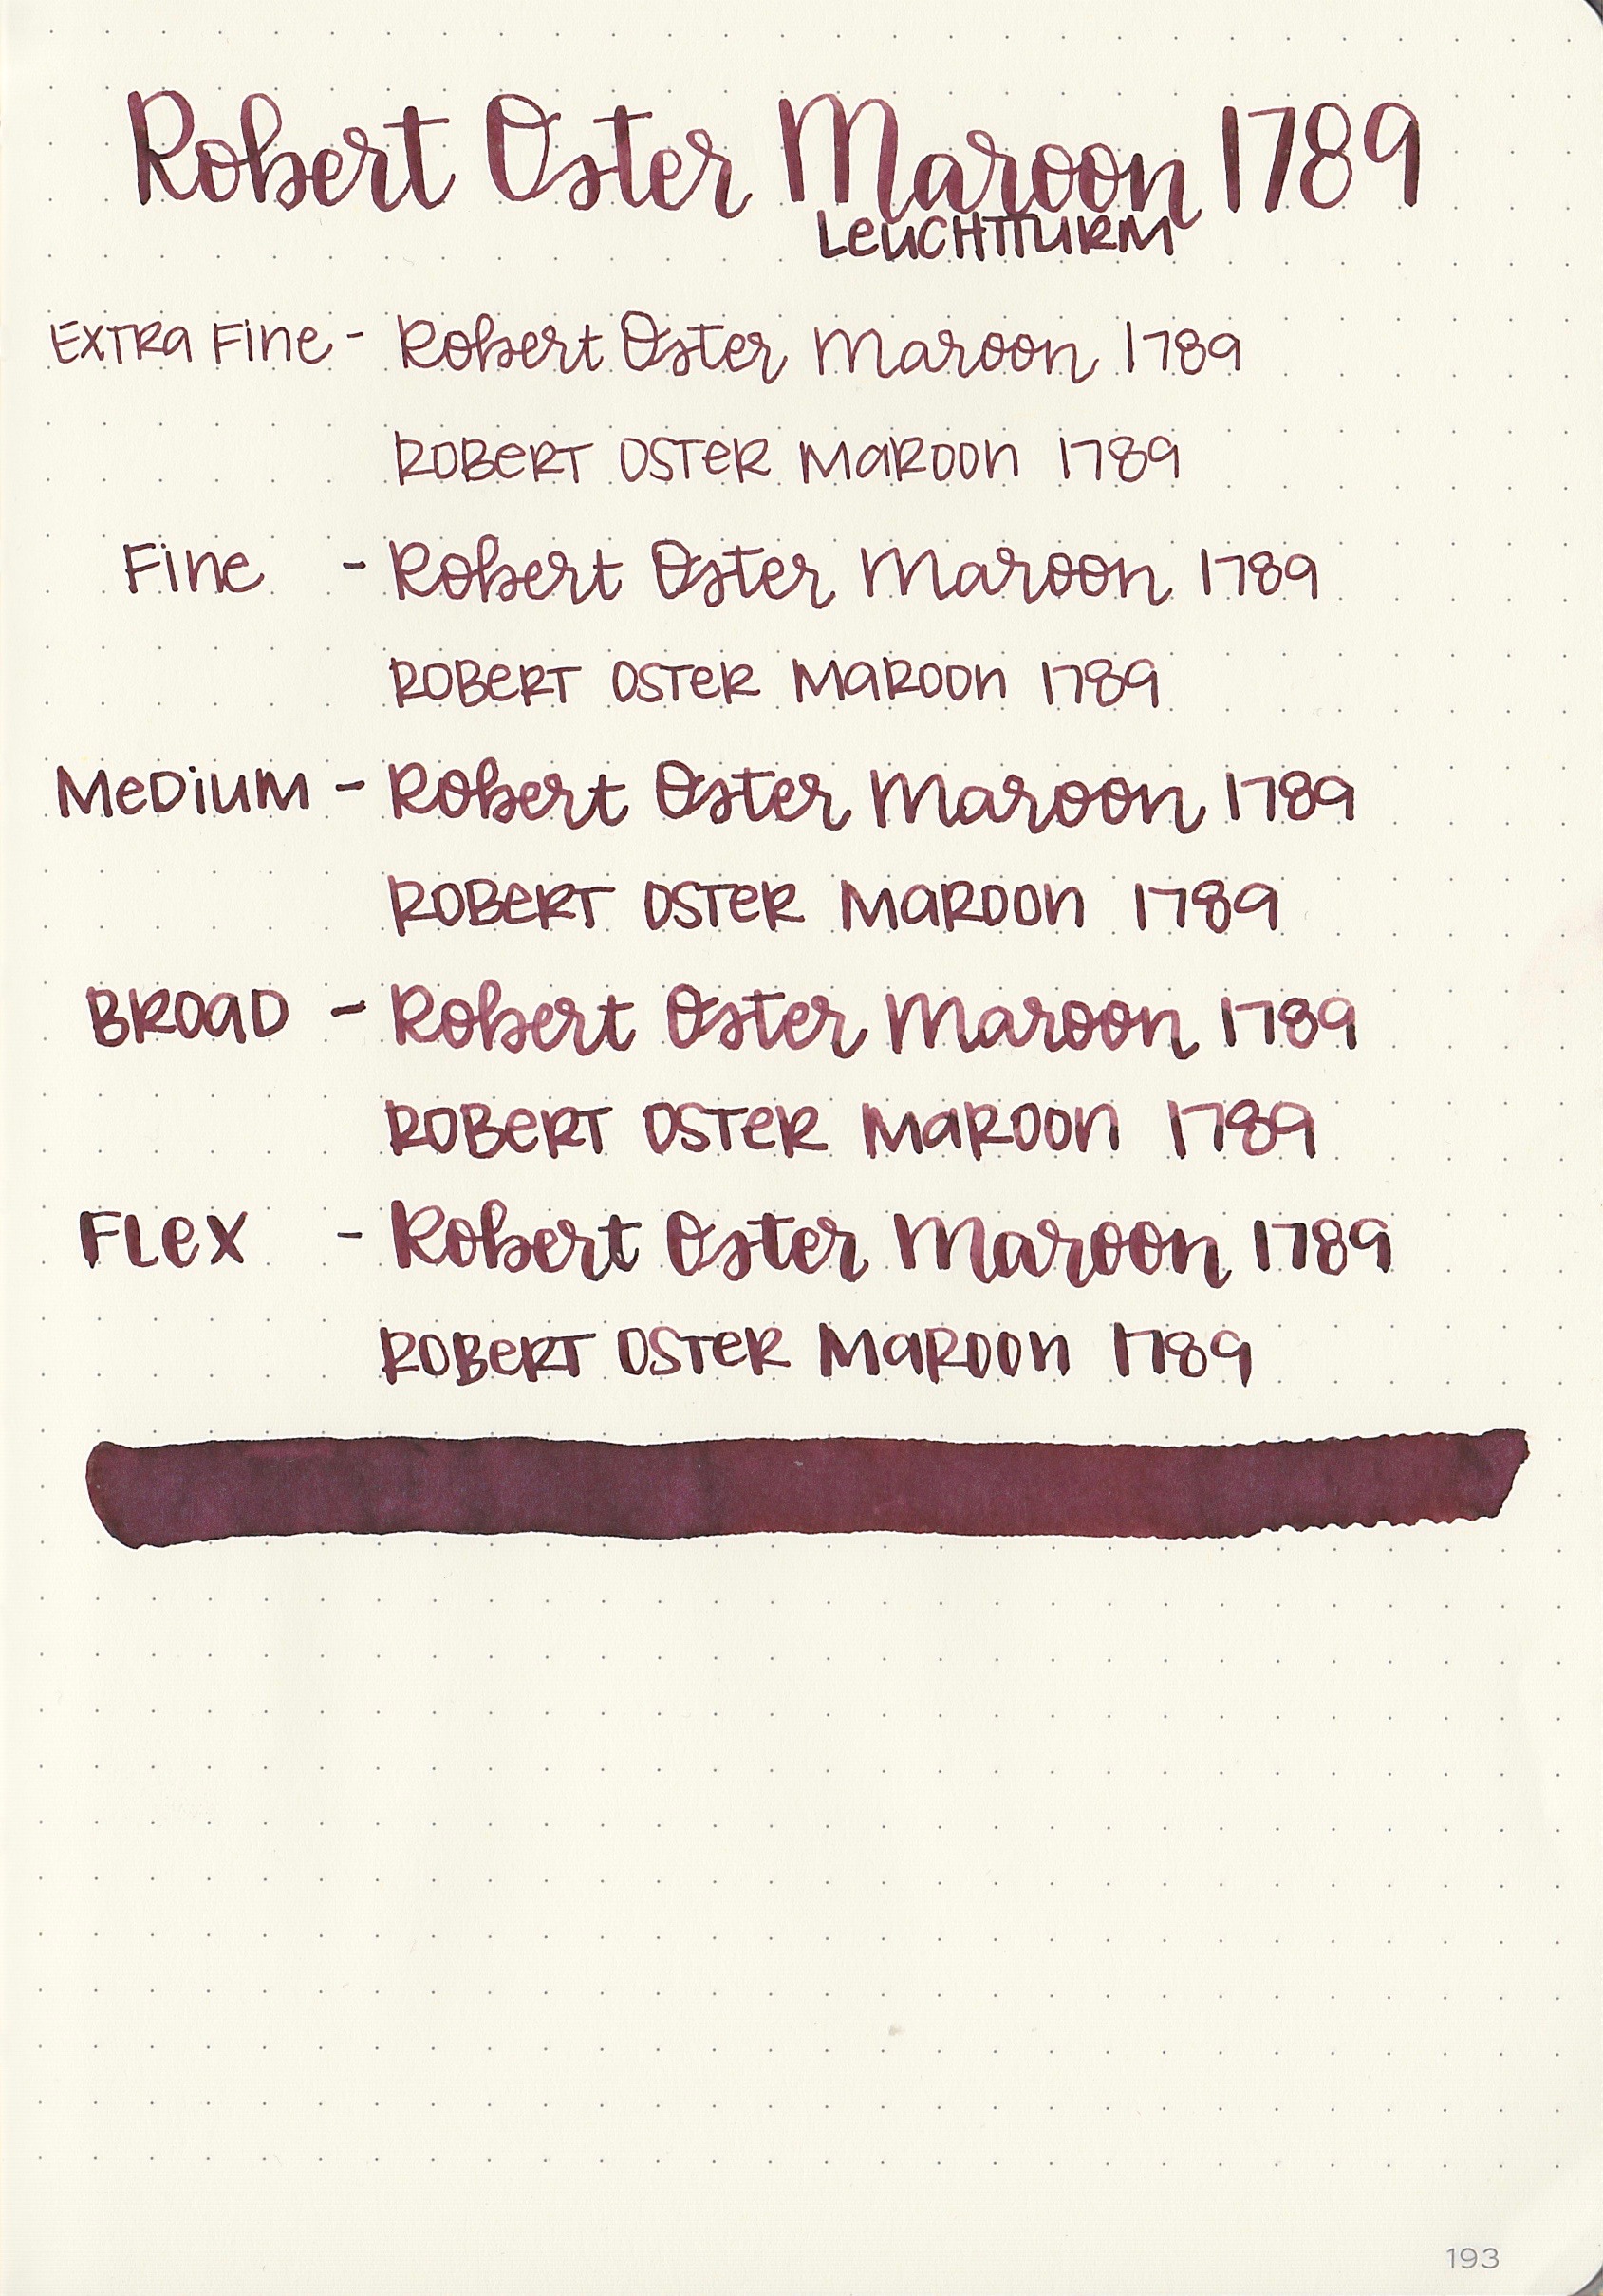 Robert Oster Maroon 1789
LeuCHTTURM
EXTRa Fine - Robert Oster Maroon 1789
ROBeRT OSTeR MaROOn 1789
Fine - Robert Oster Maroon 1789
ROBeRT OSTeR MaROOn 1789
MeDiUM - Robert Oster Maroon 1789
ROBeRT OSTeR MaROOn 1789
BROaD - Robert Oster Maroon 1789
ROBeRT OSTeR MaROOn 1789
FLeX - Robert Oster Maroon 1789
ROBeRT OSTeR MaROOn 1789
193